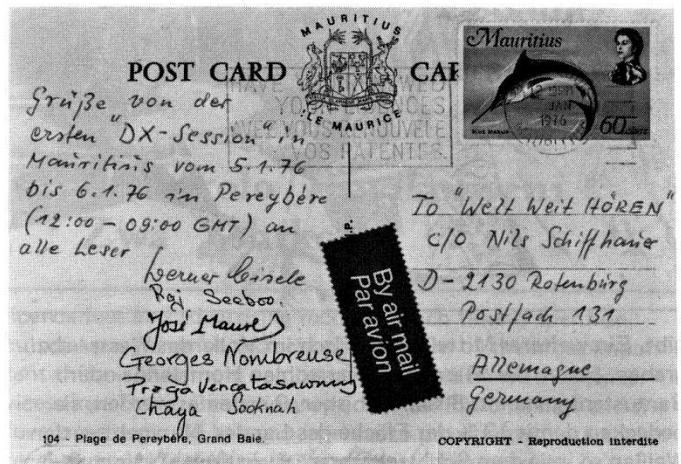 POST CARD
MAURITIUS
ILE MAURICE
Mauritius
BLUE MARLIN
60
12
JAN
1976
HAVE RENEWED
YOUR
AVEZ VOUS RENOUVELE
VOS PATENTES
Grüße von der
ersten "DX-Session" in
Mauritius vom 5.1.76
bis 6.1.76 in Pereybère
(12:00 - 09:00 GMT) an
alle Leser
Werner
Raj Seeboo.
José Maurel
Georges Nombreuse
Praga Vencatasawmy
Chaya Sooknah
By air mail
Par avion
To "Welt Weit HÖREN"
c/o Nils Schiffhauer
D-2130 Rotenburg
Postfach 131
Allemagne
Germany
104 - Plage de Pereybère, Grand Baie.
COPYRIGHT - Reproduction interdite